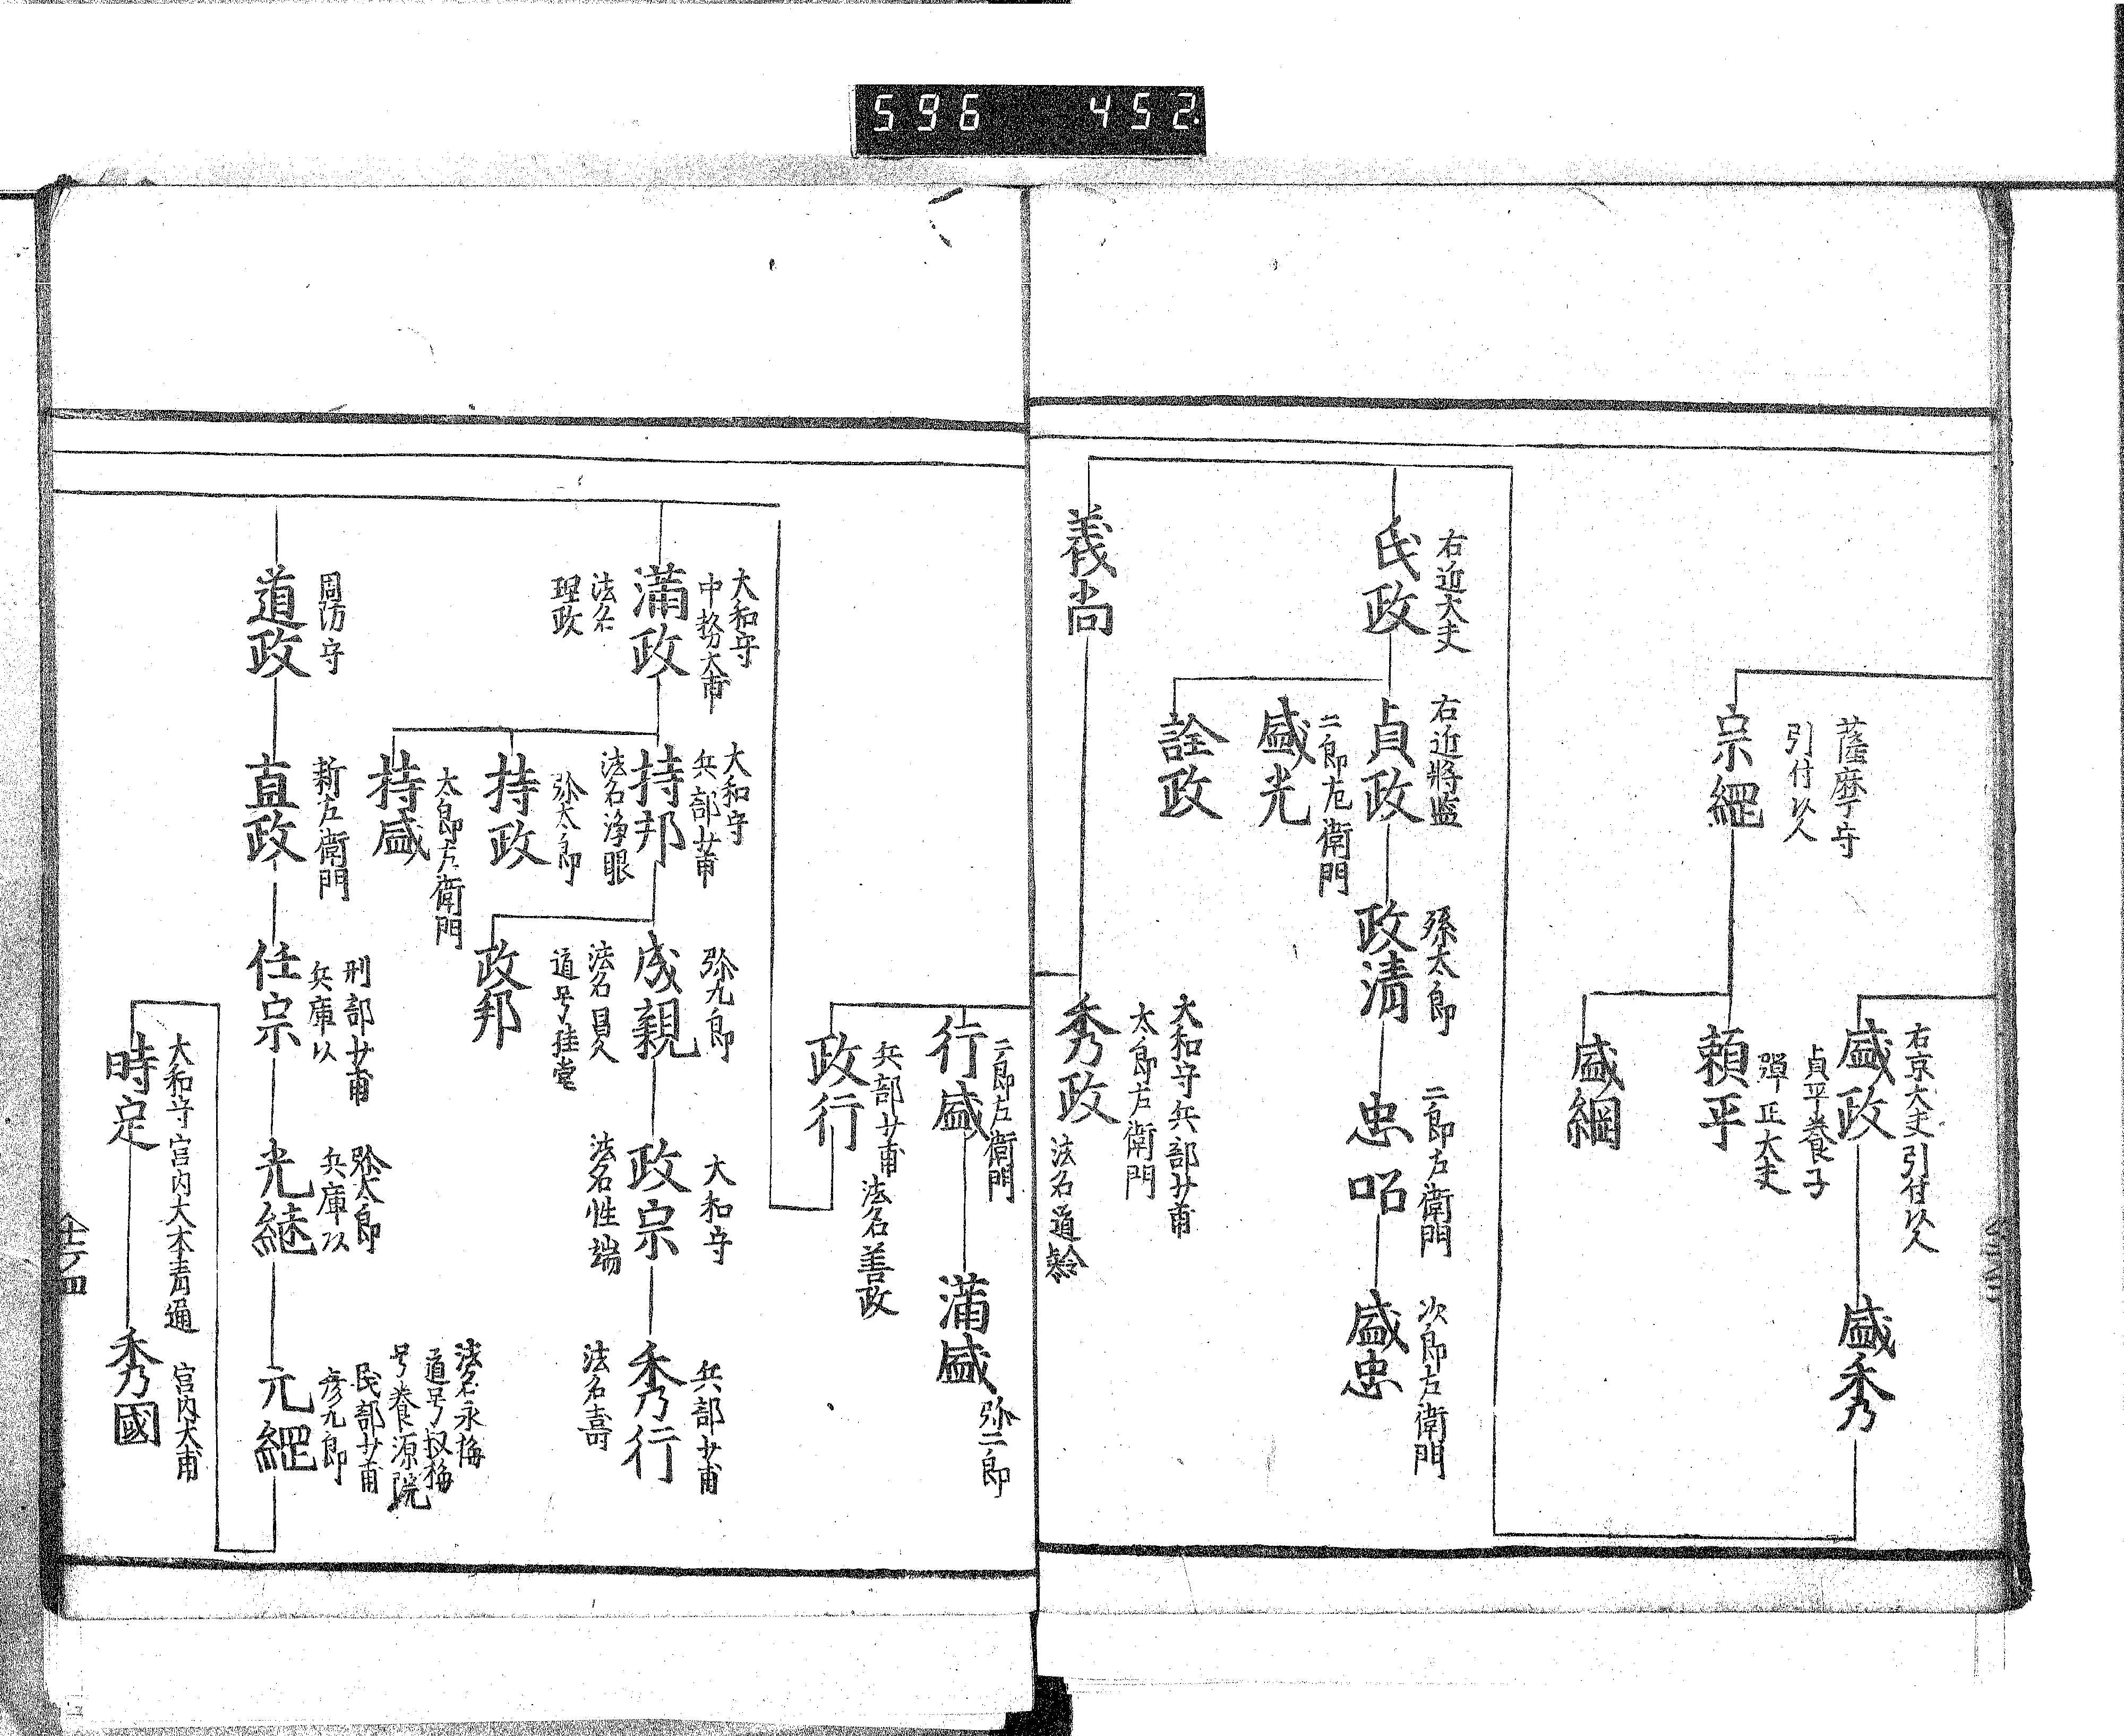 596 452
右京大夫引付以人
貞平養子
盛政
盛秀
薩摩守
引付以人
宗綱
頼平
彈正大夫
盛綱
右近大夫
氏政
右近将監
貞政
孫太郎
政清
二郎左衛門
忠昭
次郎左衛門
盛忠
二郎左衛門
盛光
詮政
義尚
大和守兵部少甫
太郎左衛門
秀政
法名道
二郎左衛門
行盛
満盛
弥二郎
政行
兵部少甫
法名善政
大和守
中務大甫
満政
法名
理政
大和守
兵部少甫
持邦
法名浄眼
弥九郎
成親
法名昌久
道号桂堂
大和守
政宗
法名性端
兵部少甫
秀行
法名壽
弥太郎
持政
政邦
太郎左衛門
持盛
周防守
道政
新左衛門
直政
刑部少甫
兵庫以
任宗
弥太郎
兵庫以
光継
法名永梅
道号叔梅
号養源院
民部少甫
彦九郎
元綱
大和守宮内大
時定
宮内大甫
秀國